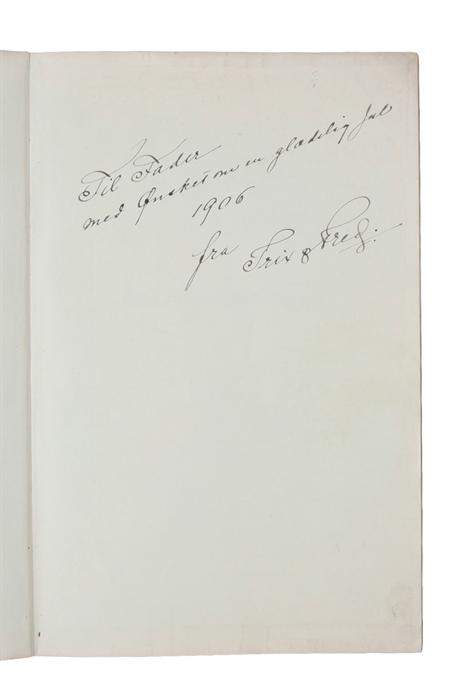 Til Fader
med Ønsket om en glædelig Jul
1906
fra Trix &